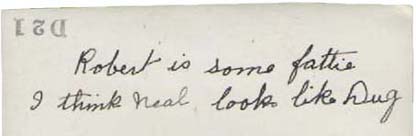 D21
Robert is some fattie
I think Neal looks like Dug